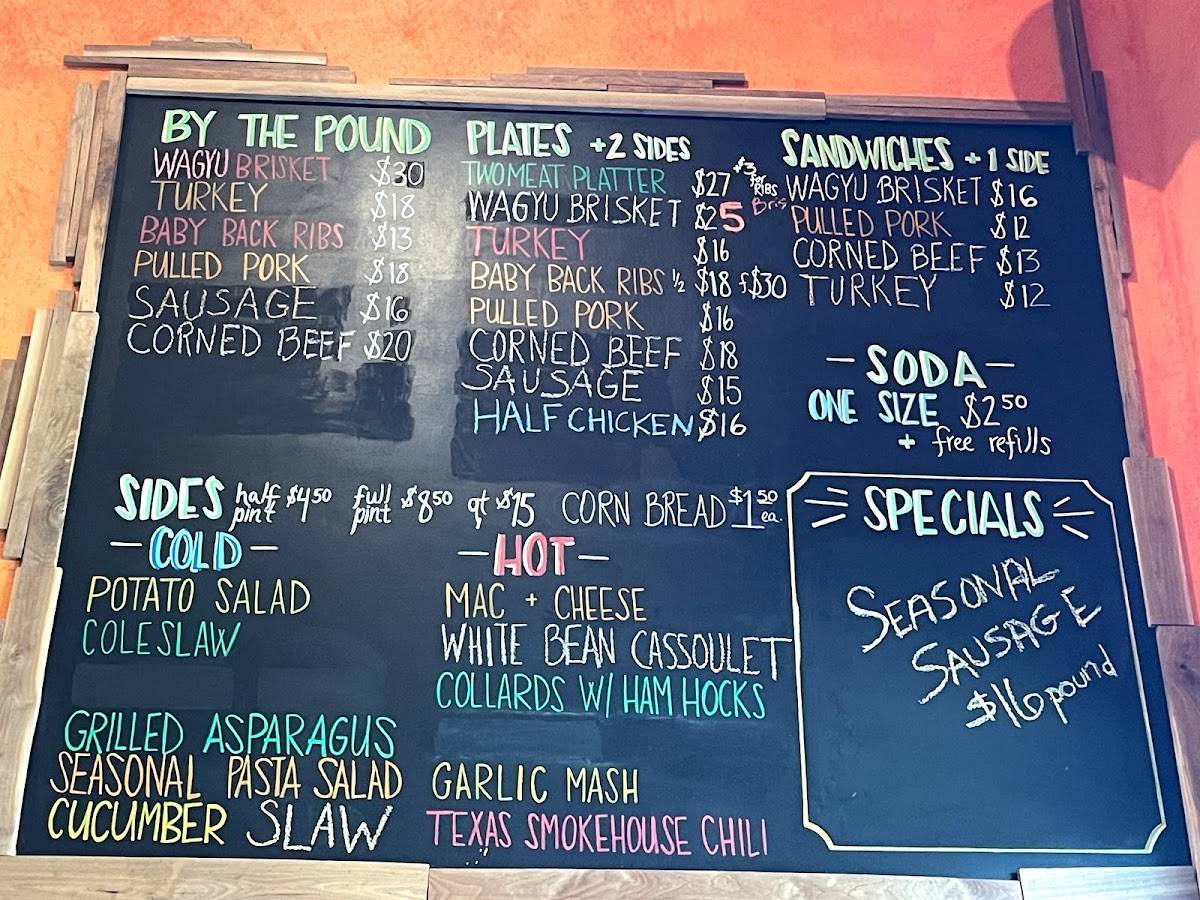 BY THE POUND
WAGYU BRISKET $30
TURKEY $18
BABY BACK RIBS $13
PULLED PORK $18
SAUSAGE $16
CORNED BEEF $20
PLATES +2 SIDES
TWO MEAT PLATTER $27 +$3 for RIBS Bris
WAGYU BRISKET $25
TURKEY $16
BABY BACK RIBS ½ $18 f $30
PULLED PORK $16
CORNED BEEF $18
SAUSAGE $15
HALF CHICKEN $16
SANDWICHES + 1 SIDE
WAGYU BRISKET $16
PULLED PORK $12
CORNED BEEF $13
TURKEY $12
- SODA -
ONE SIZE $2 50
+ free refills
SIDES half pint $4 50 full pint $8 50 qt $15 CORN BREAD $1 50 ea.
- COLD -
POTATO SALAD
COLESLAW
GRILLED ASPARAGUS
SEASONAL PASTA SALAD
CUCUMBER SLAW
- HOT -
MAC + CHEESE
WHITE BEAN CASSOULET
COLLARDS W/ HAM HOCKS
GARLIC MASH
TEXAS SMOKEHOUSE CHILI
SPECIALS
SEASONAL
SAUSAGE
$16 pound